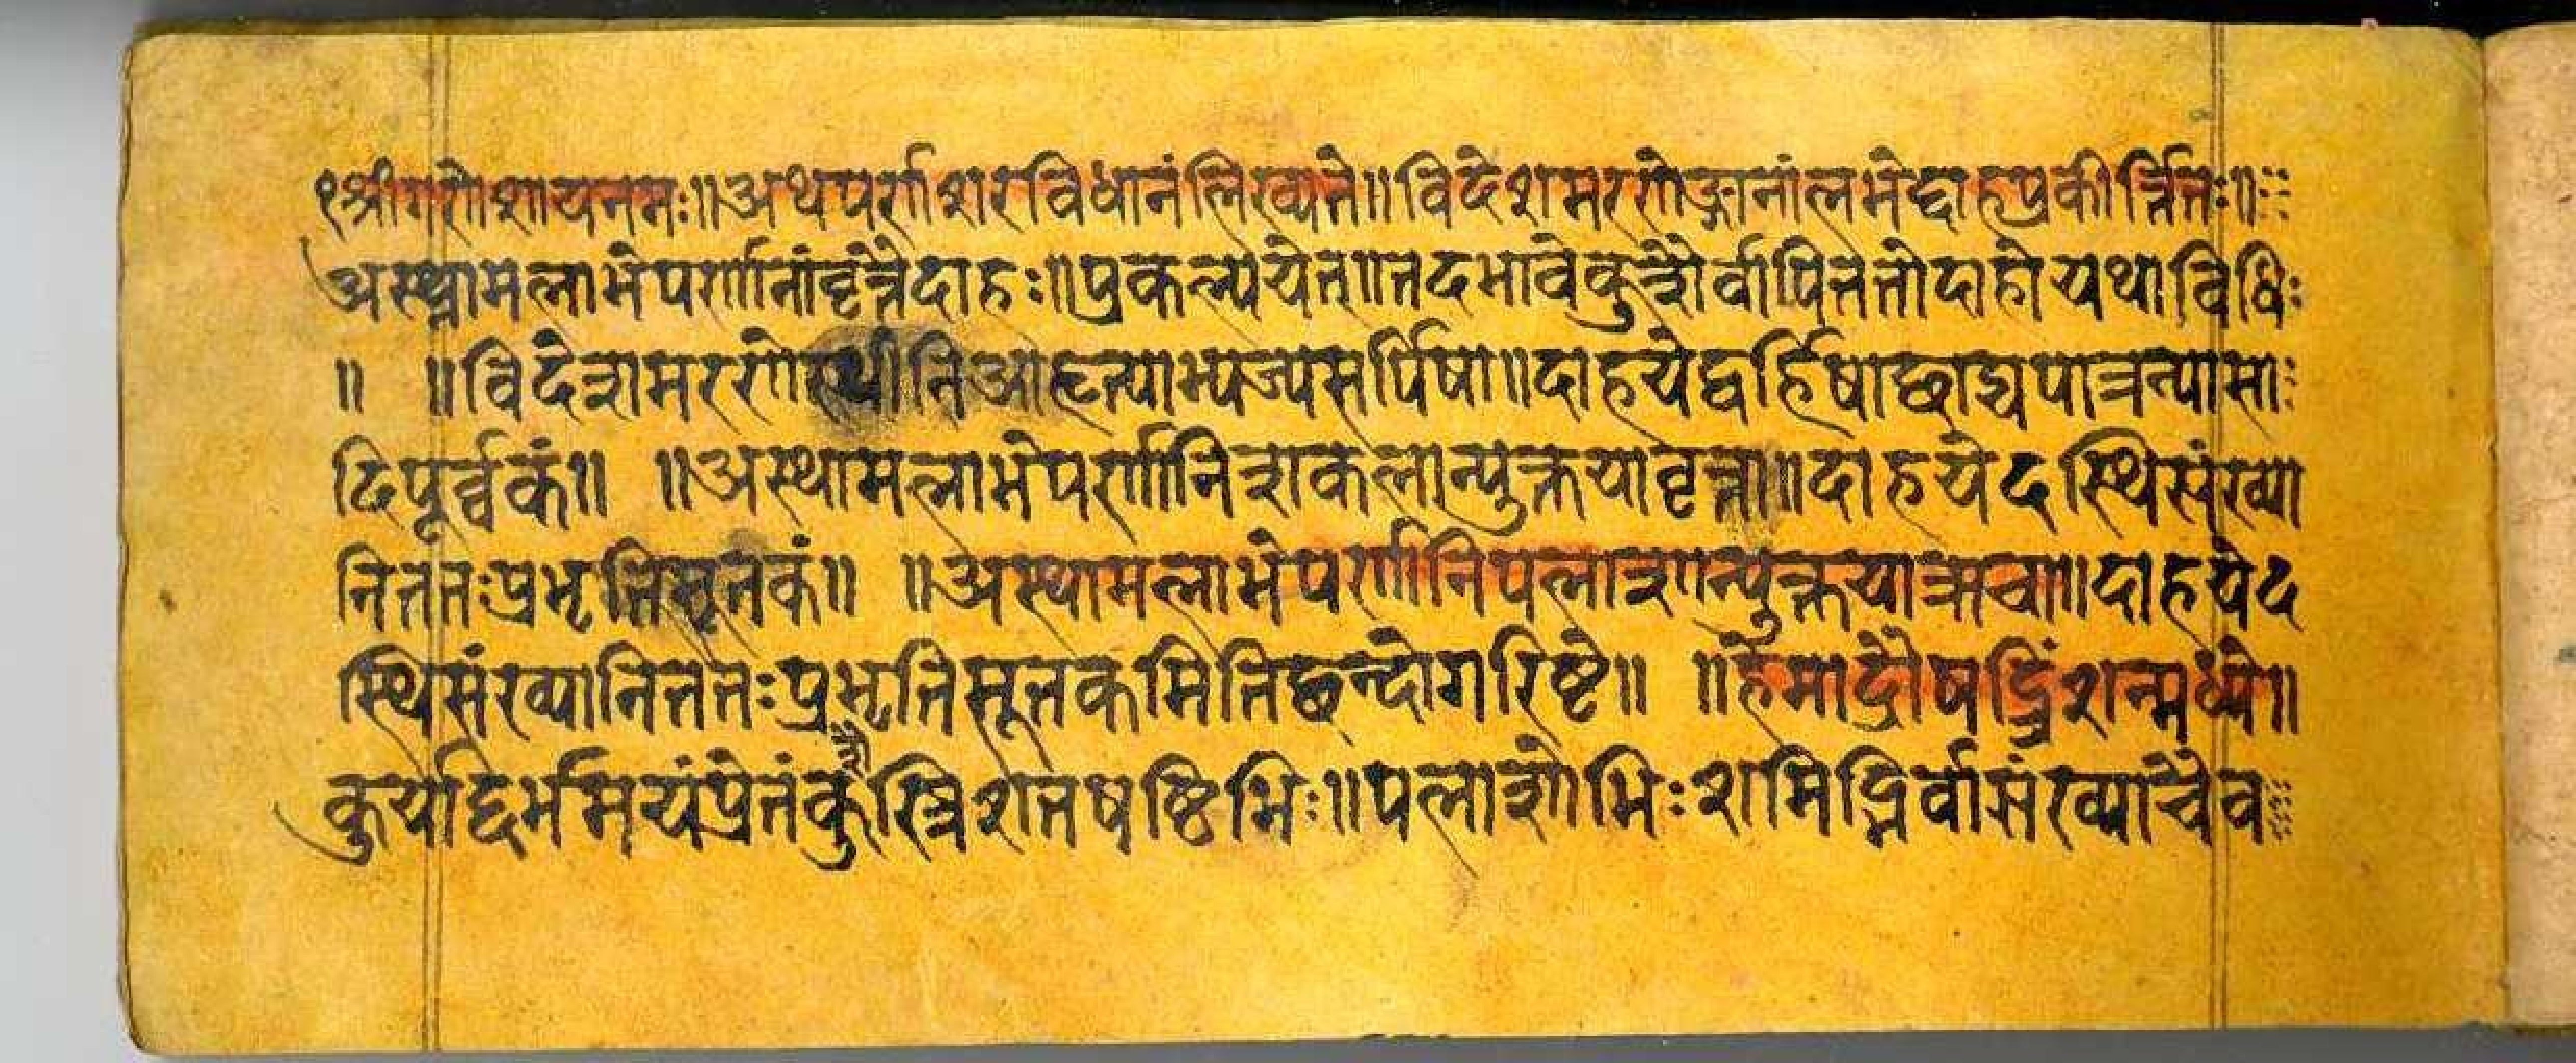 ९श्रीगणेशायनमः॥अथपर्णशरविधानंलिख्यते॥विदेशमरणेङ्गानांलभेद्दाहप्रकीर्त्तितः॥
अस्थ्नामलाभेपर्णानांवृंतैदाहः॥प्रकल्पयेत्॥तदभावेकुशैर्वापिततोदाहोयथाविधिः
॥ ॥विदेशमरणेस्थीनिआहृत्याभ्यज्यसर्पिषा॥दाहयेद्बर्हिषाछाद्यपात्रन्यासा
दिपूर्व्वकं॥ ॥अस्थामलाभेपर्णानिशकलान्युक्तयावृता॥दाहयेदस्थिसंख्या
निततःप्रभृतिसूतकं॥ ॥अस्थामलाभेपर्णानिपलाशान्युक्तया॥दाहयेद
स्थिसंख्यानिततःप्रभृतिसूतकमितिछन्दोगरिष्टे॥ ॥हेमाद्रौषट्त्रिंशन्मध्ये॥
कुर्याद्दर्भमयंप्रेतंकुशैस्त्रिशतषष्टिभिः॥पलाशोभिःशमिद्भिर्वासंख्याचैव